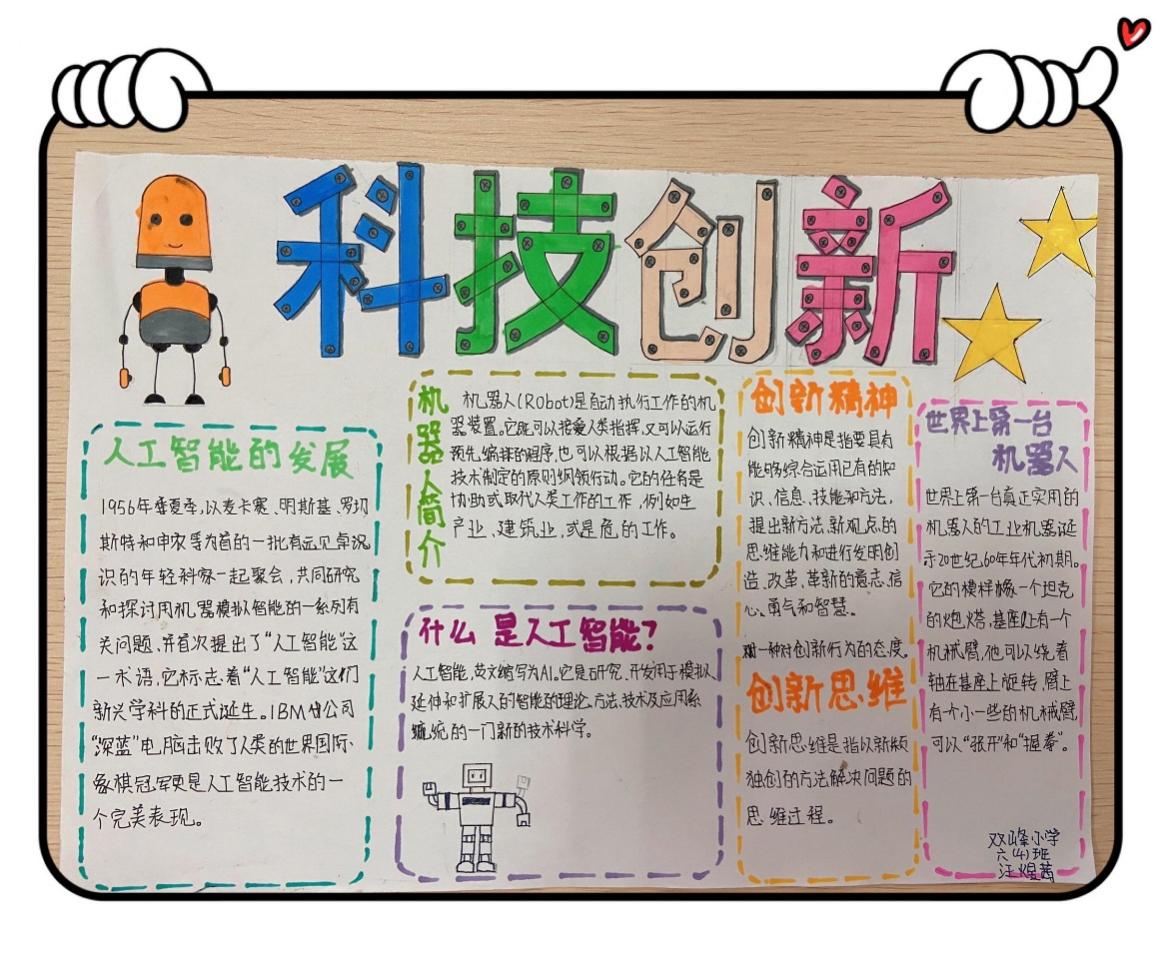 科技创新
人工智能的发展
1956年夏季，以麦卡赛、明斯基、罗切
斯特和申农等为首的一批有远见卓识
识的年轻科家一起聚会，共同研究
和探讨用机器模拟智能的一系列有
关问题，并首次提出了“人工智能”这
一术语，它标志着“人工智能”这们
新兴学科的正式诞生。IBM公司
“深蓝”电脑击败了人类的世界国际
象棋冠军更是人工智能技术的一
个完美表现。
机器人简介
机器人(Robot)是自动执行工作的机
器装置。它既可以接受人类指挥，又可以运行
预先编排的程序，也可以根据以人工智能
技术制定的原则纲领行动。它的任务是
协助或取代人类工作的工作，例如生
产业、建筑业，或是危的工作。
什么是人工智能？
人工智能，英文缩写为AI。它是研究、开发用于模拟、
延伸和扩展人的智能的理论、方法、技术及应用系
统的一门新的技术科学。
创新精神
创新精神是指要具有
能够综合运用已有的知
识、信息、技能和方法，
提出新方法、新观点的
思维能力和进行发明创
造、改革、革新的意志、信
心、勇气和智慧。
一种对创新行为的态度。
创新思维
创新思维是指以新颖
独创的方法解决问题的
思维过程。
世界上第一台
机器人
世界上第一台真正实用的
机器人的工业机器诞
于20世纪60年年代初期。
它的模样像一个坦克
的炮塔，基座上有一个
机械臂，他可以绕着
轴在基座上旋转，臂上
有个小一些的机械臂，
可以“张开”和“握拳”。
双峰小学
六(4)班
汪煜茜